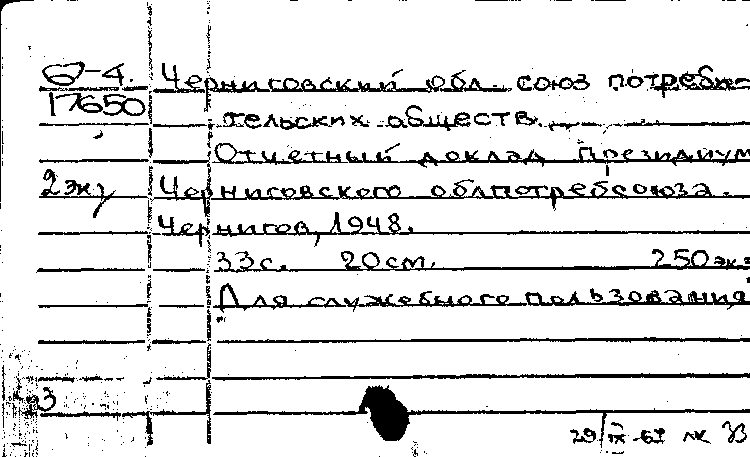 67-4. Черниговский обл. союз потреби-
17650 тельских обществ.
Отчетный доклад Президиум
2 экз Черниговского облпотребсоюза.
Чернигов, 1948.
33 с. 20 см. 250 экз
Для служебного пользования
3
29/IX-67